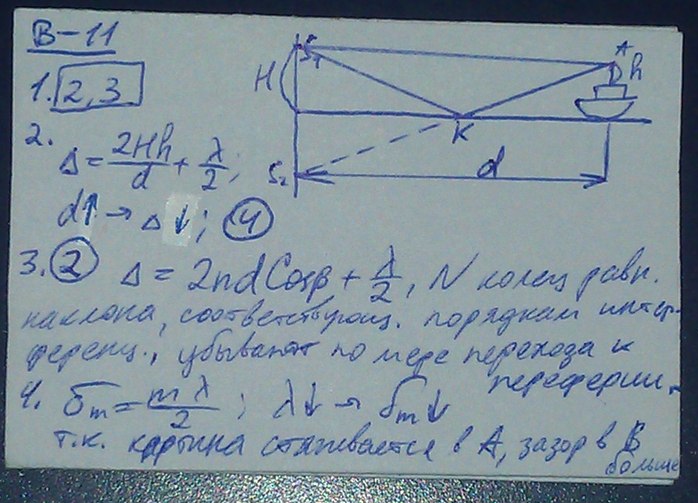 В-11
1. 2,3
2.
Δ = 2Hh/d + λ/2;
d↑ → Δ↓; 4
H
S₁
S₂
K
A
h
d
3. 2 Δ = 2nd Cosβ + λ/2, N колец равн.
наклона, соответствующ. порядкам интер-
ференц., убывают по мере перехода к
переферии.
4. δm = mλ/2 ; λ↓ → δm↓
т.к. картина стягивается в A, зазор в B
больше